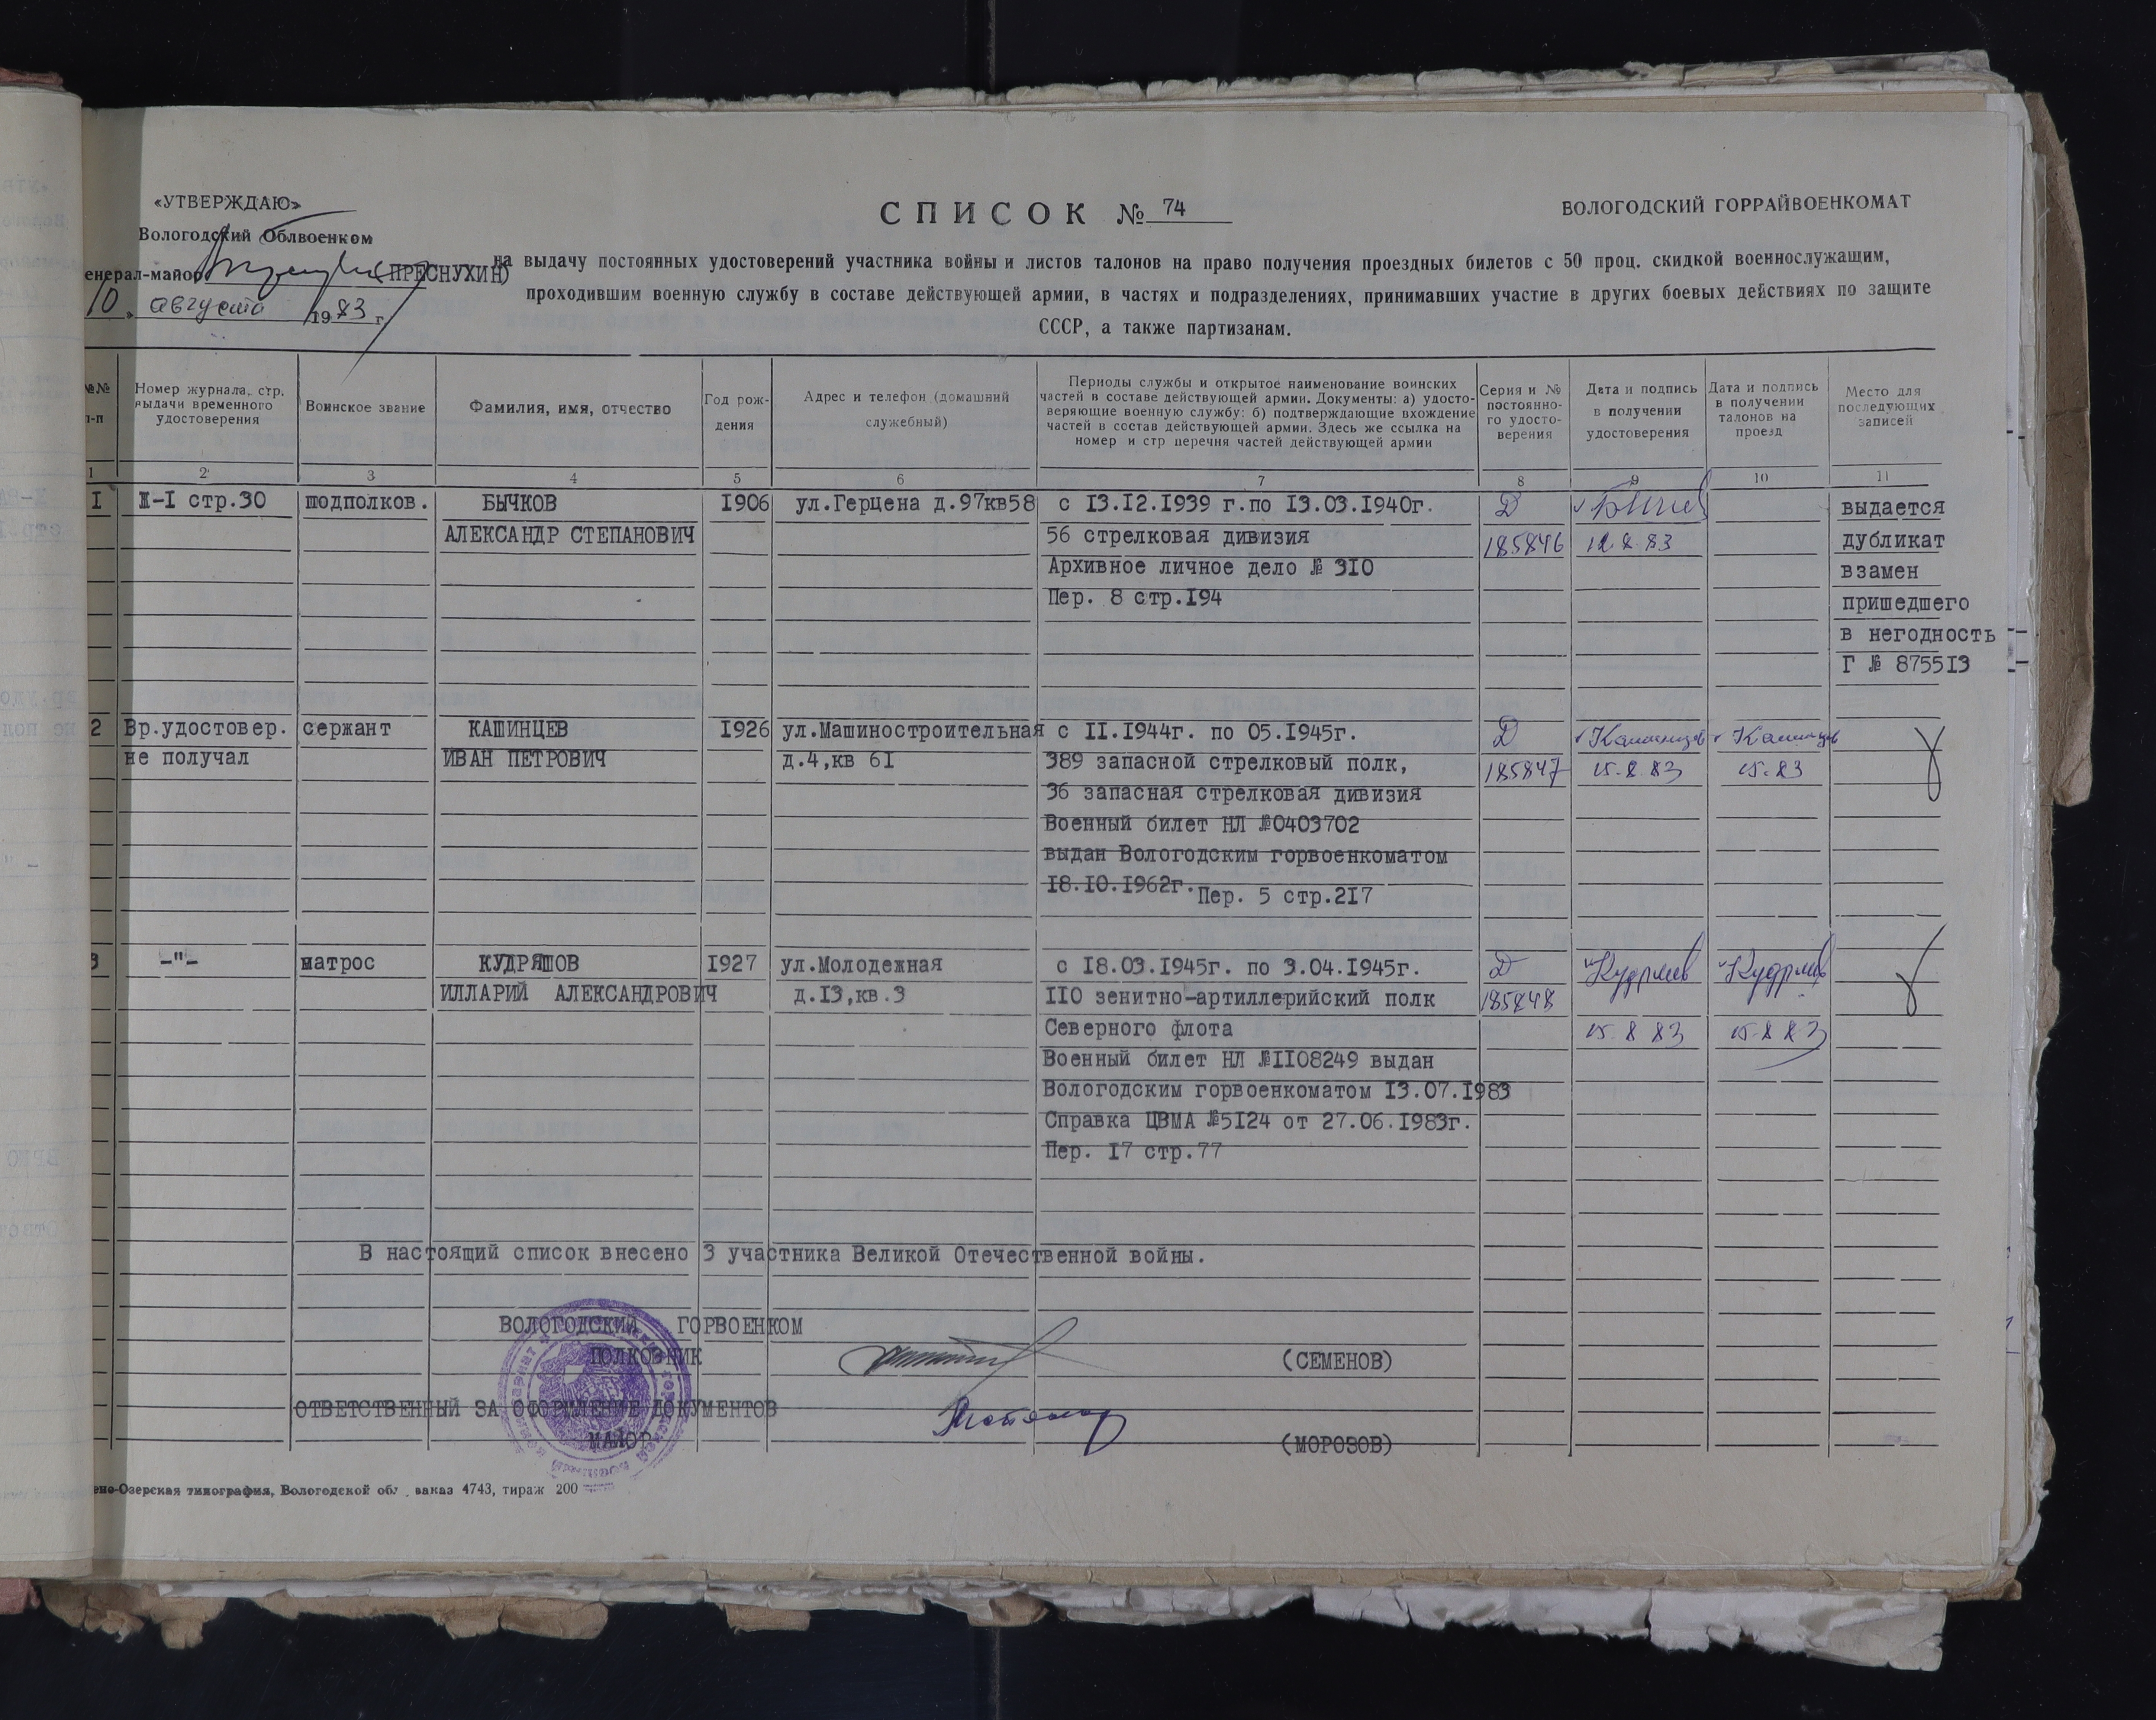 «УТВЕРЖДАЮ»
Вологодский Облвоенком
енерал-майор (ПРЕСНУХИН)
10 » августа 1983 г.
СПИСОК № 74
ВОЛОГОДСКИЙ ГОРРАЙВОЕНКОМАТ
на выдачу постоянных удостоверений участника войны и листов талонов на право получения проездных билетов с 50 проц. скидкой военнослужащим,
проходившим военную службу в составе действующей армии, в частях и подразделениях, принимавших участие в других боевых действиях по защите
СССР, а также партизанам.
№№
п-п
Номер журнала, стр.
выдачи временного
удостоверения
Воинское звание
Фамилия, имя, отчество
Год рож-
дения
Адрес и телефон (домашний
служебный)
Периоды службы и открытое наименование воинских
частей в составе действующей армии. Документы: а) удосто-
веряющие военную службу: б) подтверждающие вхождение
частей в состав действующей армии. Здесь же ссылка на
номер и стр перечня частей действующей армии
Серия и №
постоянно-
го удосто-
верения
Дата и подпись
в получении
удостоверения
Дата и подпись
в получении
талонов на
проезд
Место для
последующих
записей
1 2 3 4 5 6 7 8 9 10 11
I Ж-I стр.30 подполков. БЫЧКОВ 1906 ул.Герцена д.97кв58 с 13.12.1939 г.по 13.03.1940г. Д выдается
АЛЕКСАНДР СТЕПАНОВИЧ 56 стрелковая дивизия 185846 12.8.83 дубликат
Архивное личное дело № 310 взамен
Пер. 8 стр.194 пришедшего
в негодность
Г № 875513
2 Вр.удостовер. сержант КАШИНЦЕВ 1926 ул.Машиностроительная с II.1944г. по 05.1945г. Д Кашинцев Кашинцев
не получал ИВАН ПЕТРОВИЧ д.4,кв 61 389 запасной стрелковый полк, 185847 15.8.83 15.83
36 запасная стрелковая дивизия
Военный билет НЛ №0403702
выдан Вологодским горвоенкоматом
18.10.1962г. Пер. 5 стр.217
3 -"- матрос КУДРЯШОВ 1927 ул.Молодежная с 18.03.1945г. по 3.04.1945г. Д Кудряшов Кудряшов
ИЛЛАРИЙ АЛЕКСАНДРОВИЧ д.13,кв.3 110 зенитно-артиллерийский полк 185848
Северного флота 15.8.83 15.8.83
Военный билет НЛ №1108249 выдан
Вологодским горвоенкоматом 13.07.1983
Справка ЦВМА №5124 от 27.06.1983г.
Пер. 17 стр.77
В настоящий список внесено 3 участника Великой Отечественной войны.
ВОЛОГОДСКИЙ ГОРВОЕНКОМ
ПОЛКОВНИК (СЕМЕНОВ)
ОТВЕТСТВЕННЫЙ ЗА ОФОРМЛЕНИЕ ДОКУМЕНТОВ
МАЙОР (МОРОЗОВ)
ено-Озерская типография, Вологодской обл., заказ 4743, тираж 200